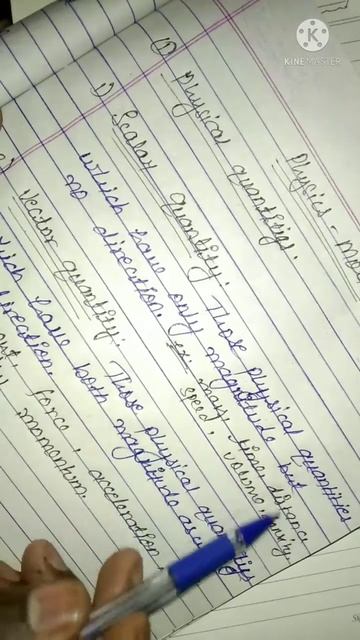 KINEMASTER
Physics - 
① Physical quantities.
1) Scalar quantity: Those physical quantities
which have only magnitude but
no direction. ex mass, time, distance
speed, volume,
Vector quantity: Those physical
which have both magnitude as
direction.
force, acceleration
momentum.